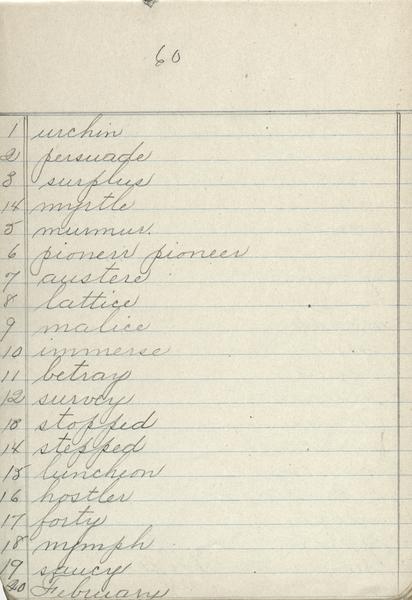 60
1 urchin
2 persuade
3 surplus
14 myrtle
5 murmur.
6 pionerr pioneer
7 austere
8 lattice
9 malice
10 immerse
11 betray
12 survey
13 stopped
14 stepped
15 luncheon
16 hostler
17 forty
18 nymph
19 saucy
20 February